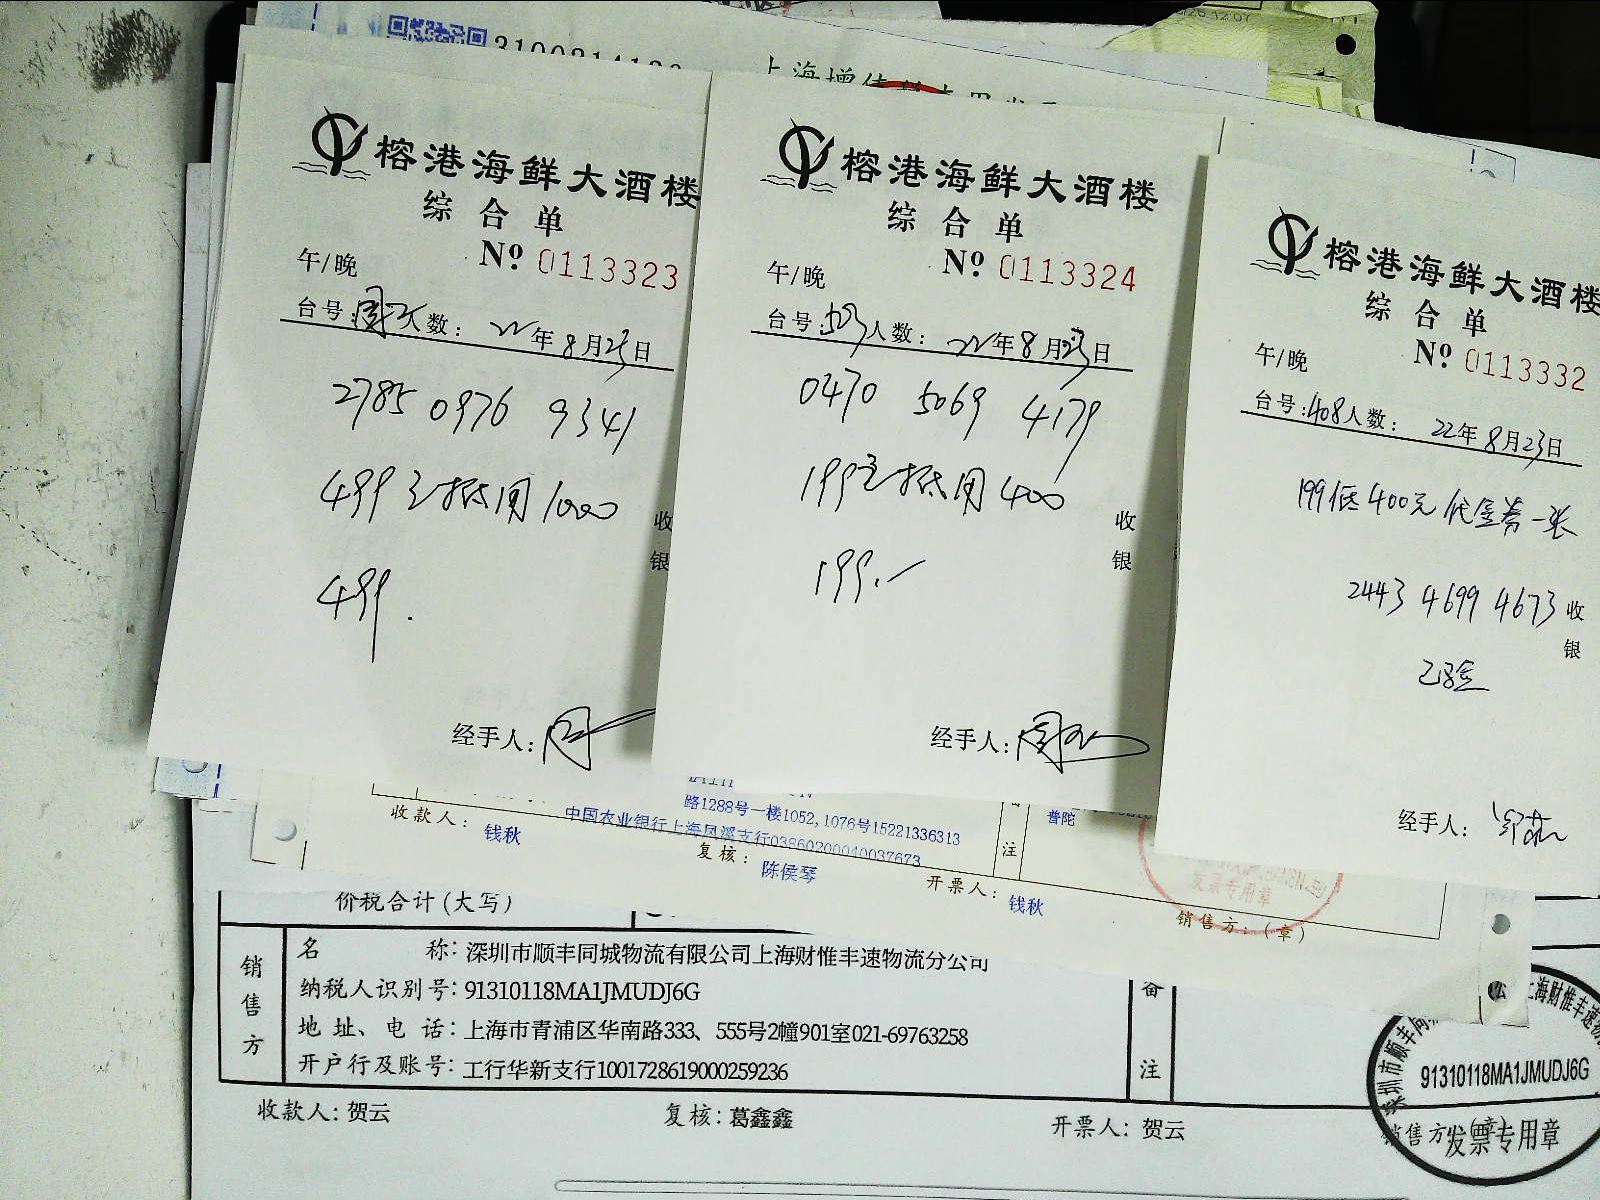 上海增值
榕港海鲜大酒楼
综合单
Nº 0113323
午/晚
台号: 人数: 22年8月23日
2785 0976 9341
499元抵用1000
收
银
499.
经手人:
榕港海鲜大酒楼
综合单
Nº 0113324
午/晚
台号: 503 人数: 22年8月23日
0470 5069 4179
199元抵用400
收
银
199.
经手人:
榕港海鲜大酒楼
综合单
Nº 0113332
午/晚
台号: 408 人数: 22年8月23日
199抵400元代金券一张
2443 4699 4673
收
银
已验
经手人:
路1288号一楼1052,1076号15221336313
中国农业银行上海凤溪支行03860200040037673
注
普陀
收款人: 钱秋
复核: 陈侯琴
开票人: 钱秋
销售方:(章)
发票专用章
价税合计(大写)
销售方
名称: 深圳市顺丰同城物流有限公司上海财惟丰速物流分公司
纳税人识别号: 91310118MA1JMUDJ6G
地址、电话: 上海市青浦区华南路333、555号2幢901室021-69763258
开户行及账号: 工行华新支行1001728619000259236
备
注
收款人: 贺云
复核: 葛鑫鑫
开票人: 贺云
销售方:(章)
91310118MA1JMUDJ6G
发票专用章